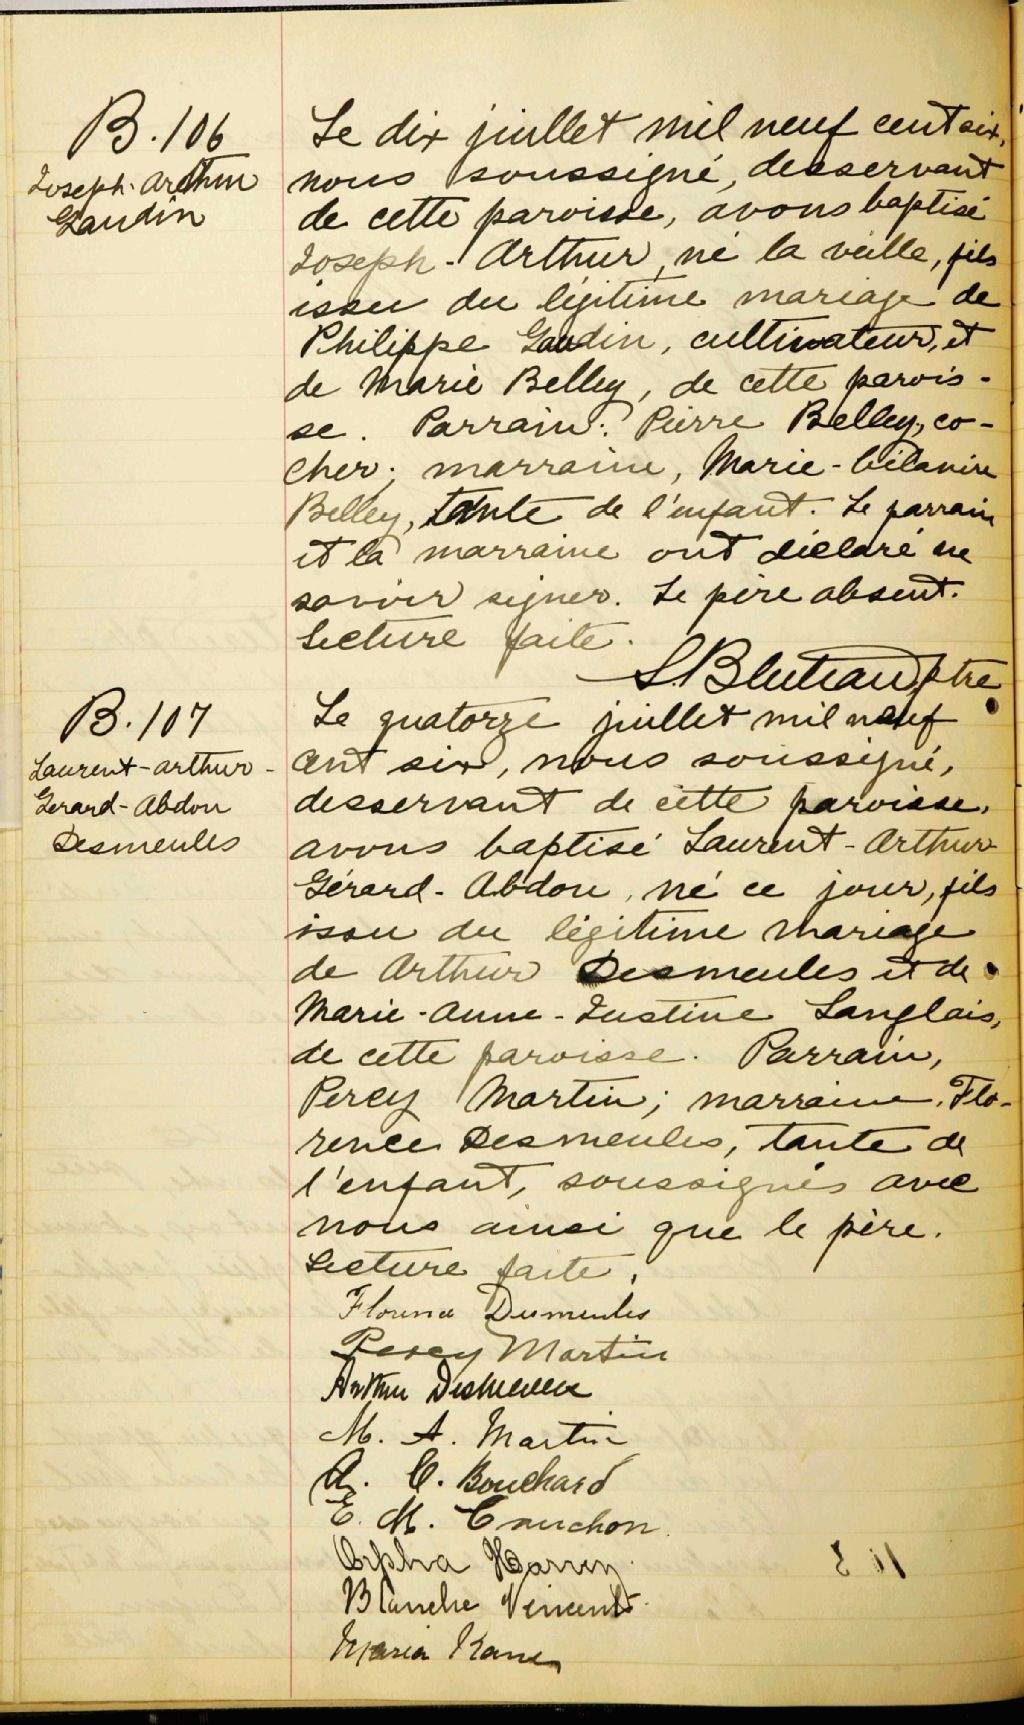 B.106
Joseph-Arthur
Gaudin
Le dix juillet mil neuf cent six,
nous soussigné, desservant
de cette paroisse, avons baptisé
Joseph-Arthur, né la veille, fils
issu du légitime mariage de
Philippe Gaudin, cultivateur, et
de Marie Belley, de cette parois-
se. Parrain: Pierre Belley, co-
cher; marraine, Marie-
Belley, tante de l'enfant. Le parrain
et la marraine ont déclaré ne
savoir signer. Le père absent.
Lecture faite.
Ptre
B.107
Laurent-Arthur-
Gerard-Abdon
Desmeules
Le quatorze juillet mil neuf
cent six, nous soussigné,
desservant de cette paroisse,
avons baptisé Laurent-Arthur
Gérard-Abdon, né ce jour, fils
issu du légitime mariage
de Arthur Desmeules et de
Marie-Anne-Justine Langlais,
de cette paroisse. Parrain,
Percy Martin; marraine, Flo-
rence Desmeules, tante de
l'enfant, soussignés avec
nous ainsi que le père.
Lecture faite.
Florence Desmeules
Percy Martin
Arthur Desmeules
M. A. Martin
A. C. Bouchard
E. M. Cauchon
Orpha
Blanche Vincent
Maria Kane